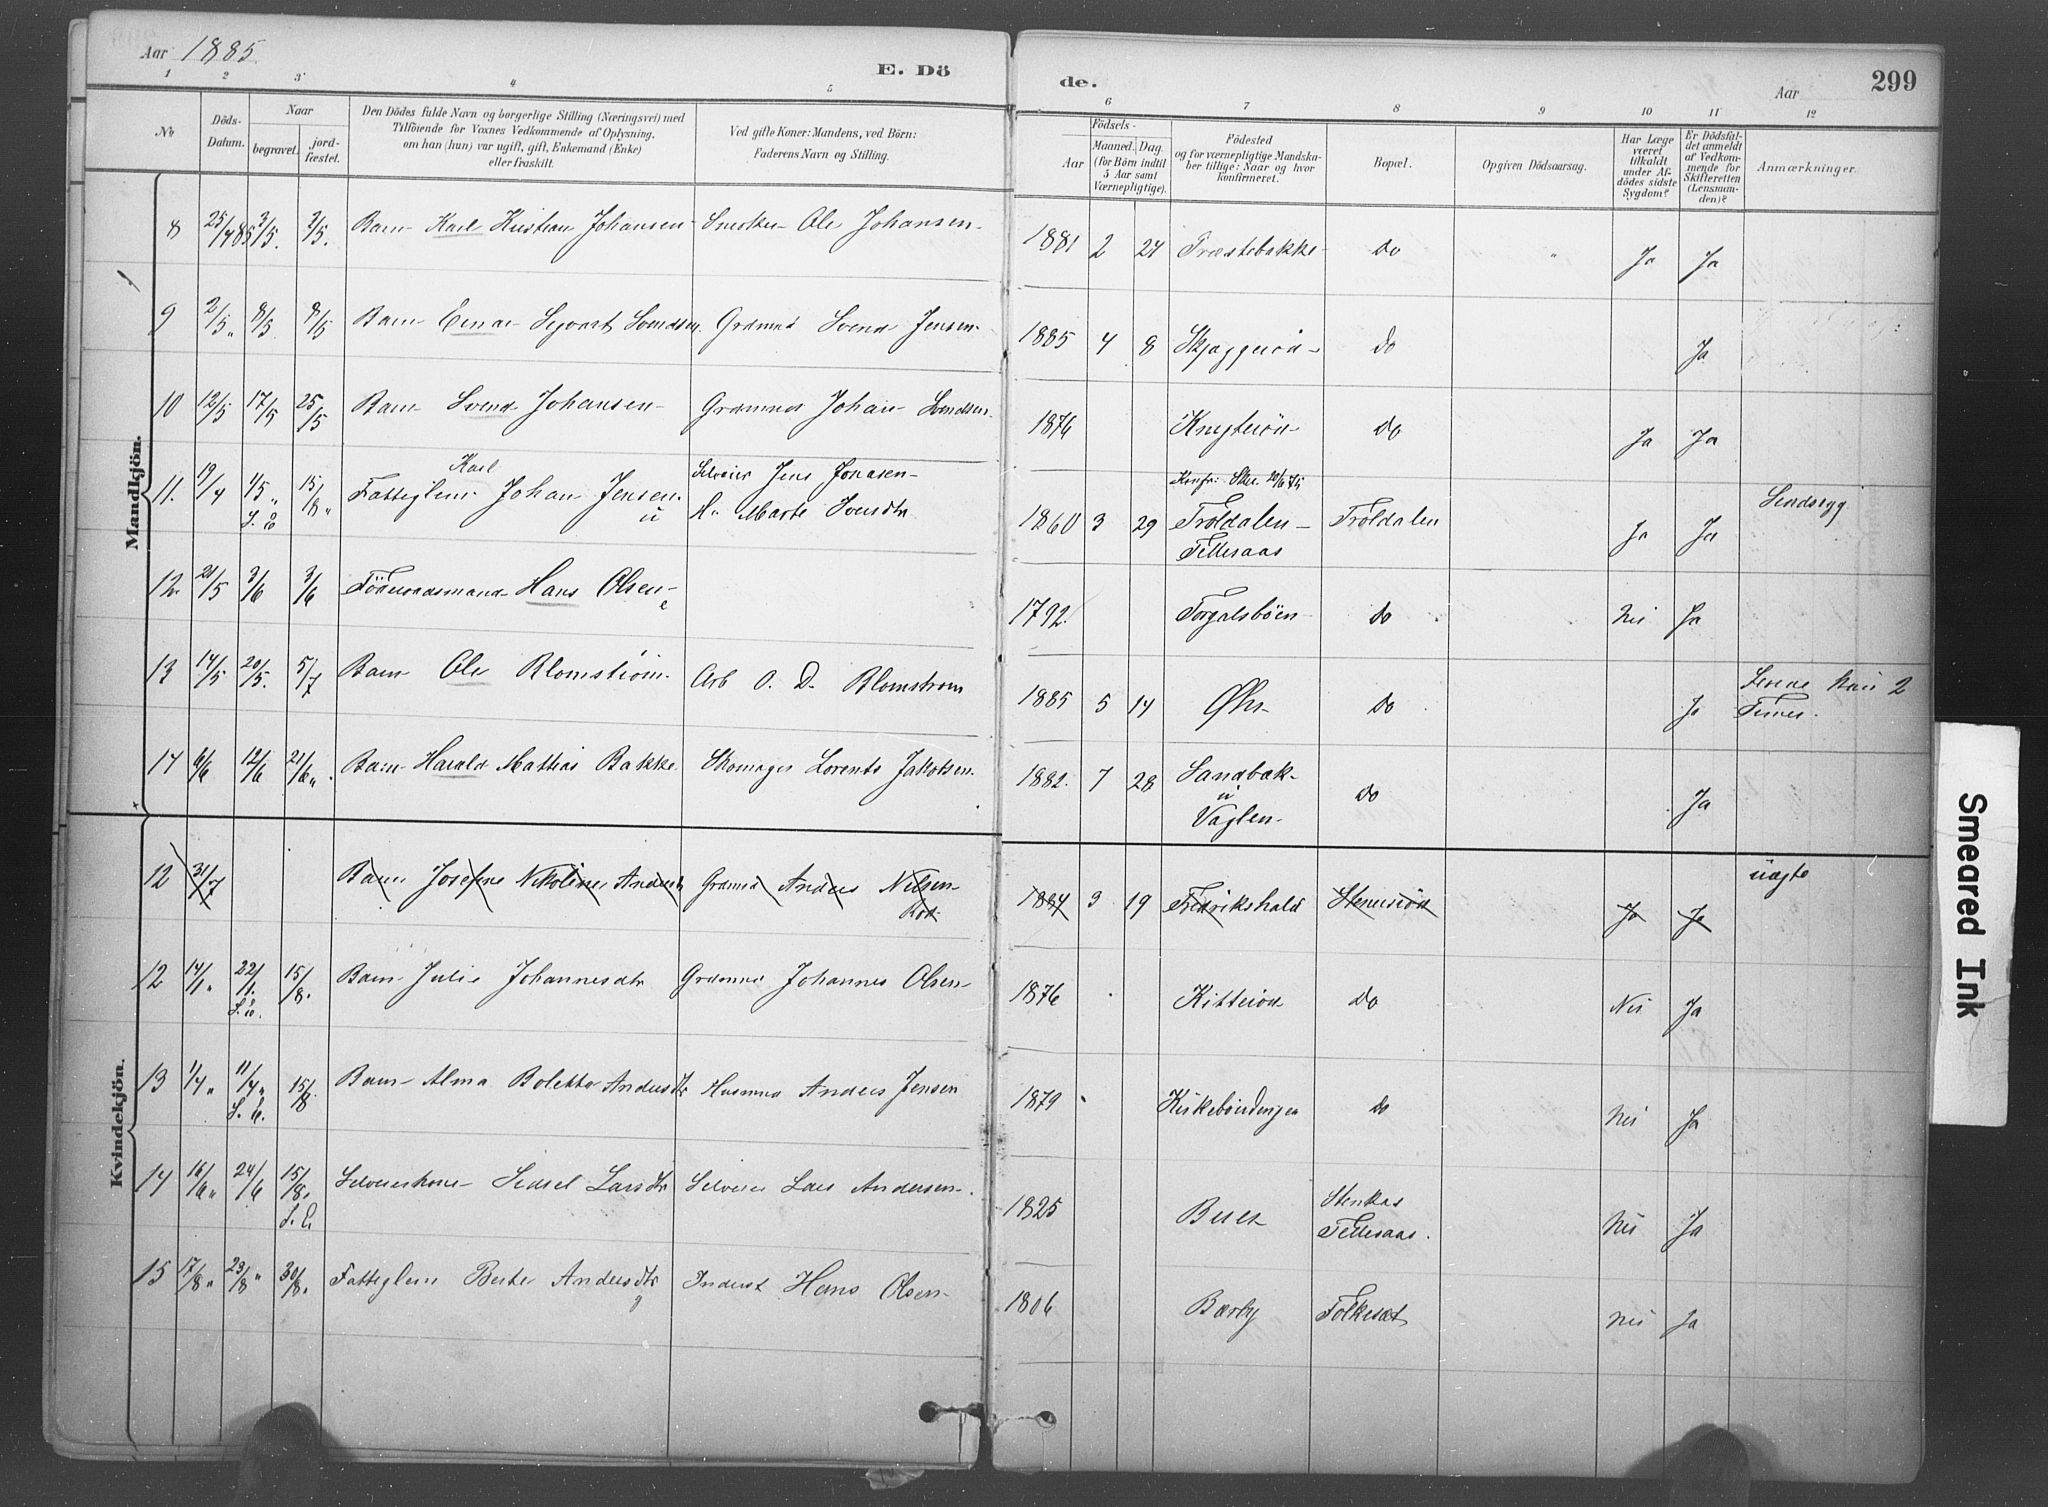 Aar 1885.
E. Dö
de.
Aar
299
1 2 3 4 5 6 7 8 9 10 11 12
No
Döds-Datum.
Naar
begravet.
jord-fæstet.
Den Dödes fulde Navn og borgerlige Stilling (Næringsvei) med
Tilföiende for Voxnes Vedkommende af Oplysning,
om han (hun) var ugift, gift, Enkemand (Enke)
eller fraskilt.
Ved gifte Koner: Mandens, ved Börn:
Faderens Navn og Stilling.
Födsels-
Aar
Maaned.
Dag.
(for Börn indtil
5 Aar samt
Værnepligtige).
Födested
og for værnepligtige Mandska-
ber tillige: Naar og hvor
konfirmeret.
Bopæl.
Opgiven Dödsaarsag.
Har Læge
været
tilkaldt
under Af-
dödes sidste
Sygdom?
Er Dödsfal-
det anmeldt
af Vedkom-
mende for
Skifteretten
(Lensman-
den)?
Anmærkninger.
Mandkjön.
8 25/4 85 3/5. 3/5. Barn Karl Kristian Johansen Snedker Ole Johansen 1881 2 24 Præstebakke Do " Ja Ja
9 2/5 " 8/5 8/5 Barn Einar Sigvart Svendsen Grdmnd Svend Jensen 1885 4 8 Skjaggeröd Do Ja
10 12/5 17/5 25/5 Barn Svend Johansen Grdmnd Johan Svendsen 1876 Knegteröd Do Ja Ja
11. 19/4 1/5 " 15/8 " Fatteglem Karl Johan Jensen u Selveier Jens Jonasen
Marte Svendtr 1860 3 29 Troldalen
Tellesaas Troldalen Ja Ja Sindssyg
12. 21/5 3/6 3/6 Föderaadsmand Hans Olsen e 1792. Torgalsböen Do Nei Ja
13 14/5 20/5. 5/7 Barn Ole Blomström Arb O. D. Blomstrom 1885 5 14 Öhr Do Ja
14 6/6 12/6 21/6 " Barn Harald Mathias Bakke Skomager Lorents Jakobsen 1882. 7 28 Sandbak
u
Vaglen Do Ja
Kvindekjön.
12 31/7 Barn Josefine Nikoline Andersdtr Grdmnd Anders Nilsen
Röd 1884 3 19 Fredrikshald Steneröd Ja Ja uægte
12 14/1 " 22/1. 15/8. Barn Julie Johannesdtr Grdmnd Johannes Olsen 1876 Kitteröd Do Nei Ja
13 1/4 " 11/4 " 15/8 Barn Alma Bolette Andersdtr Husmnd Anders Jensen 1879 Do Nei Ja
14 16/6 " 24/6 15/8. Selveierkone Sidsel Larsdtr Selveier Lars Andersen 1825 Buer Stenkas
Tellesaas. Nei Ja
15 17/8 " 23/8 " 30/8. Fatteglem Berte Andersdtr g Inderst Hans Olsen 1806 Bærby Folkesæt Nei Ja
Smeared Ink